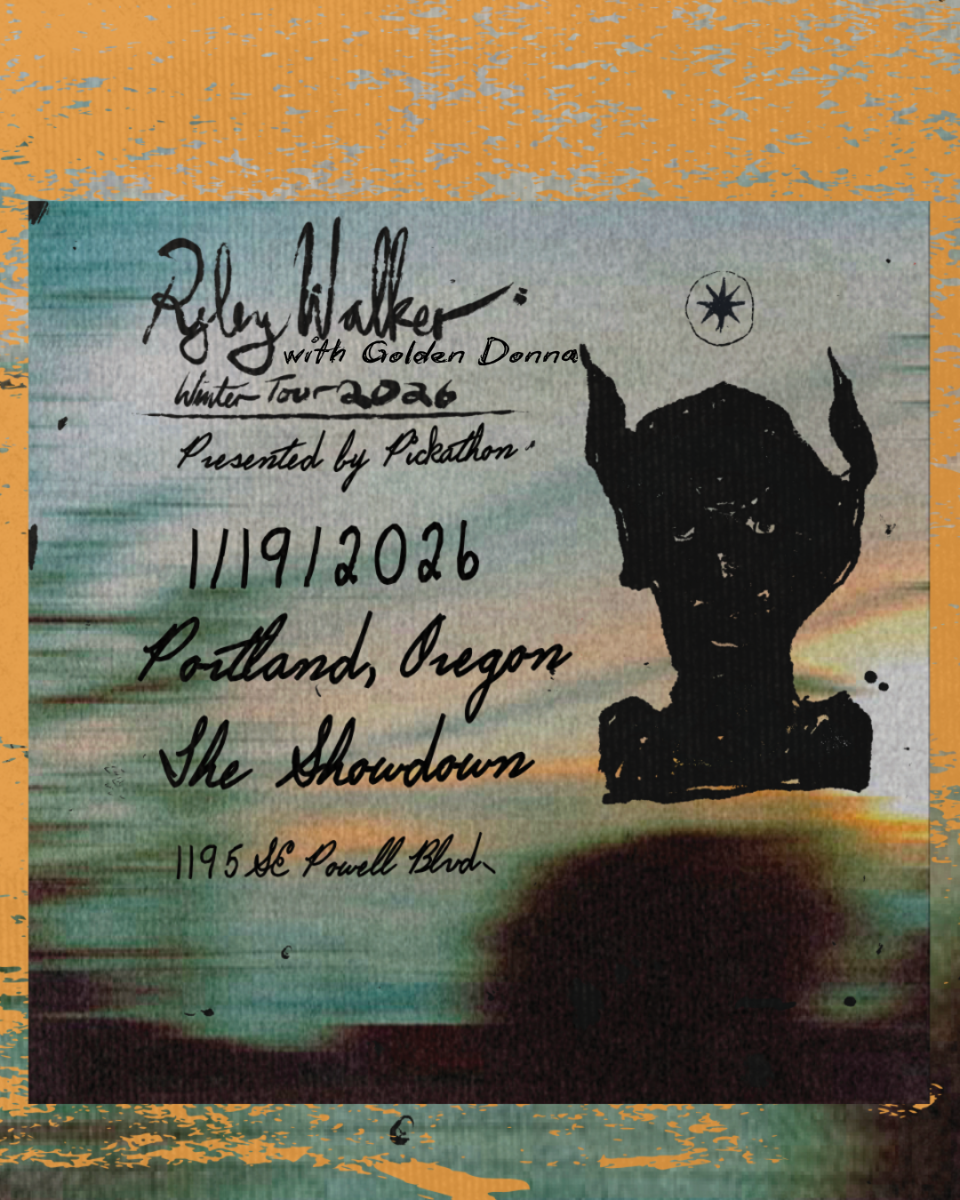 Ryley Walker
with Golden Donna
Winter Tour 2026
Presented by Pickathon
1/19/2026
Portland, Oregon
The Showdown
1195 SE Powell Blvd